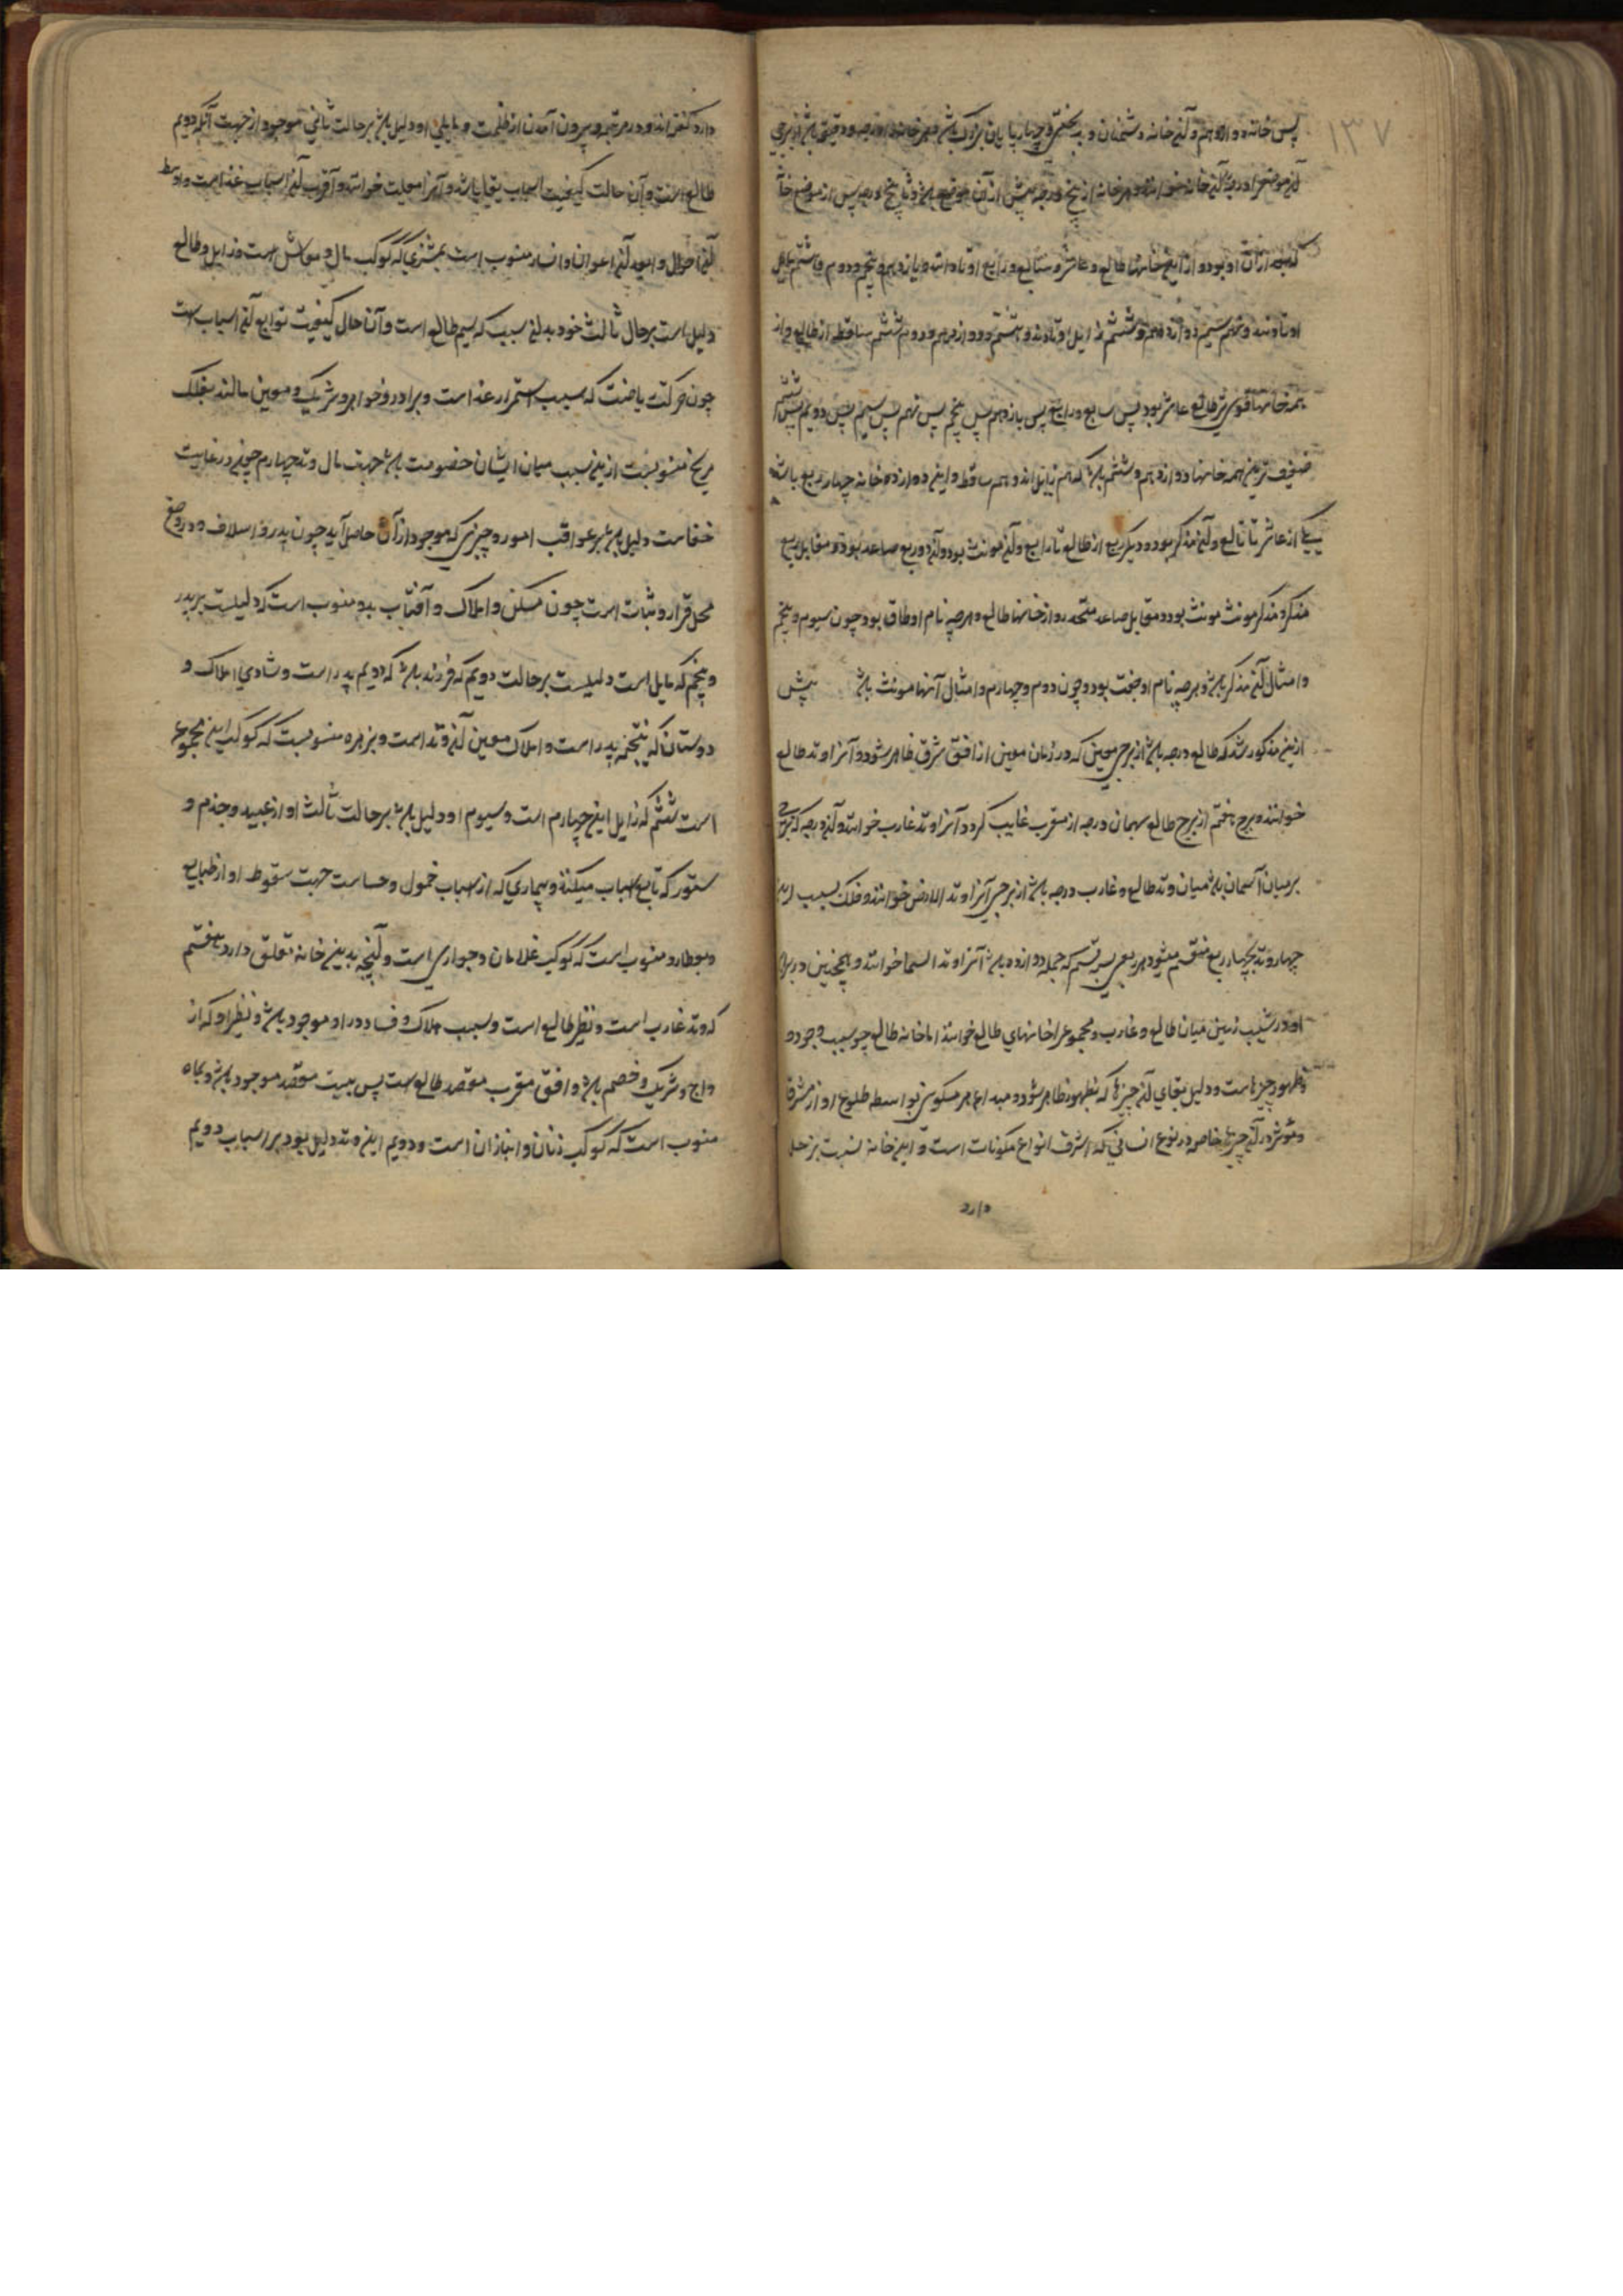 ۱۳۷
پس خانه دوازدهم و آن خانه دشمنان و بدبختی و چهارپایان بزرگ باشد و هر خانه را درجه و دقیقه باشد از برجی
آن موضع را درجه آن خانه خوانند و هر خانه از پنج درجه پیش از آن موضع باشد و تا پنج درجه پس از موضع خانه
که بعد از آن او بود و از این خانها طالع و عاشر و سابع و رابع اوتاد اند و یازدهم و پنجم و دوم و هشتم مایل
اوتادند و نهم سیم دوازدهم و ششم زایل اوتادند و هشتم و دوازدهم و دوم ششم ساقط از طالع و از
همه خانها قوی تر طالع عاشر بود پس سابع و رابع پس یازدهم پس پنجم پس نهم پس سیم پس دویم پس هشتم
ضعیف ترین همه خانها دوازدهم و ششم باشد که هم زایل اند و هم ساقط و این دوازده خانه چهار ربع باشد
یکی از عاشر تا طالع و آن مذکر بود و دیگر ربع از طالع تا رابع و آن مونث بود و آن دو ربع صاعد بود و مقابل ربع
مذکر مذکر مونث مونث بود و مقابل صاعد منحدر و از خانها طالع و هرچه نام او طاق بود چون سیوم و پنجم
و امثال آن مذکر باشد و هرچه نام او جفت بود و چون دوم و چهارم و امثال آنها مونث باشد پیش
ازین مذکور شد که طالع درجه باشد از برجی معین که در زمان معین از افق شرق ظاهر شود و آنرا وتد طالع
خوانند و برج هفتم از برج طالع بهمان درجه از مغرب غایب گردد آنرا وتد غارب خوانند و آن درجه که برجی
بر میان آسمان باشد میان وتد طالع و غارب درجه باشد از برجی آنرا وتد الارض خوانند و فلک بسبب این
چهار وتد بچهار ربع منقسم میشود هر ربعی بر سه قسم که جمله دوازده باشد آنرا وتد السما خوانند و همچنین در برابر
او در شیب زمین میان طالع و غارب و مجموع را خانهای طالع خوانند اما خانه طالع چو سبب وجود و
ظهور چیزهاست و دلیل بقای آن چیزها که بظهور ظاهر شود و مبداء هر مسکون بواسطه طلوع او از مشرق
و موثر در آن چیزها خاصه در نوع انسانی که اشرف انواع مکونات است و این خانه نسبت بزحل
دارد
دارد کنفر اند و در مرتبه و بیرون آمدن از ظلمت و مایلی او دلیل باشد بر حالت ثانی موجود از جهت آنکه دویم
طالع است و آن حالت کیفیت اسباب بقا باشد و آنرا معیشت خوانند و اقرب آن اسباب غذاست و اوسط
آن اموال و ابعد آن اعوان و انصار منسوب است بمشتری که کوکب مال و معاش است و زایل و طالع
دلیل است بر حال ثالث خود بدان سبب که سیم طالع است و آن حال کیفیت توابع آن اسباب است
چون حرکت ریاضت که سبب استمرار غذا است و برادر و خواهر و شریک و معین مالند بفلک
مریخ منسوبست ازین سبب میان ایشان خصومت باشد جهت مال وتد چهارم چون در غایت
خفاست دلیل باشد بر عواقب امور و چیزی که موجود از آن حاصل آید چون پدر و اسلاف و در موضع
محل قرار و ثبات است چون مسکن و املاک و آفتاب بدو منسوب است که دلیلست بر پدر
و پنجم که مایل است دلیلست بر حالت دویم که فرزند باشد که دویم پدر است و شادی املاک و
دوستان که نتیجه پدر است و املاک معین آن وتد است و بزهره منسوبست که کوکب این مجموع
است ششم که زایل این چهارم است و سیوم او دلیل باشد بر حالت ثالث او از عبید و خدم و
ستور که تابع اسباب میکنند و بیماری که از اسباب خمول و خساست جهت سقوط او از طالع
و بعطارد منسوب است که کوکب غلامان و جواری است و آنچه بدین خانه تعلق دارد هفتم
که وتد غارب است و نظیر طالع است و سبب هلاک و فساد در او موجود باشد و نظیر او که از
واج و شریک و خصم باشد و افق مغرب مقصد طالع است پس بیت مقصد موجود باشد و بماه
منسوب است که کوکب زنان و انبازان است و دویم این وتد دلیل بود بر اسباب دویم